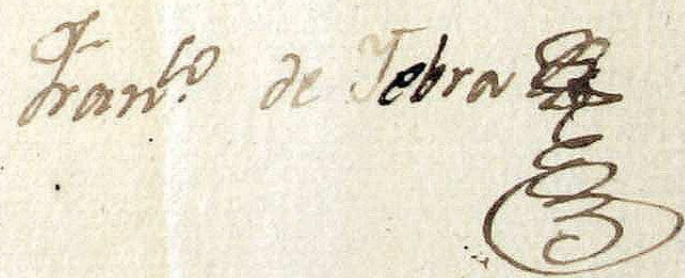 Fran.co de Yebra